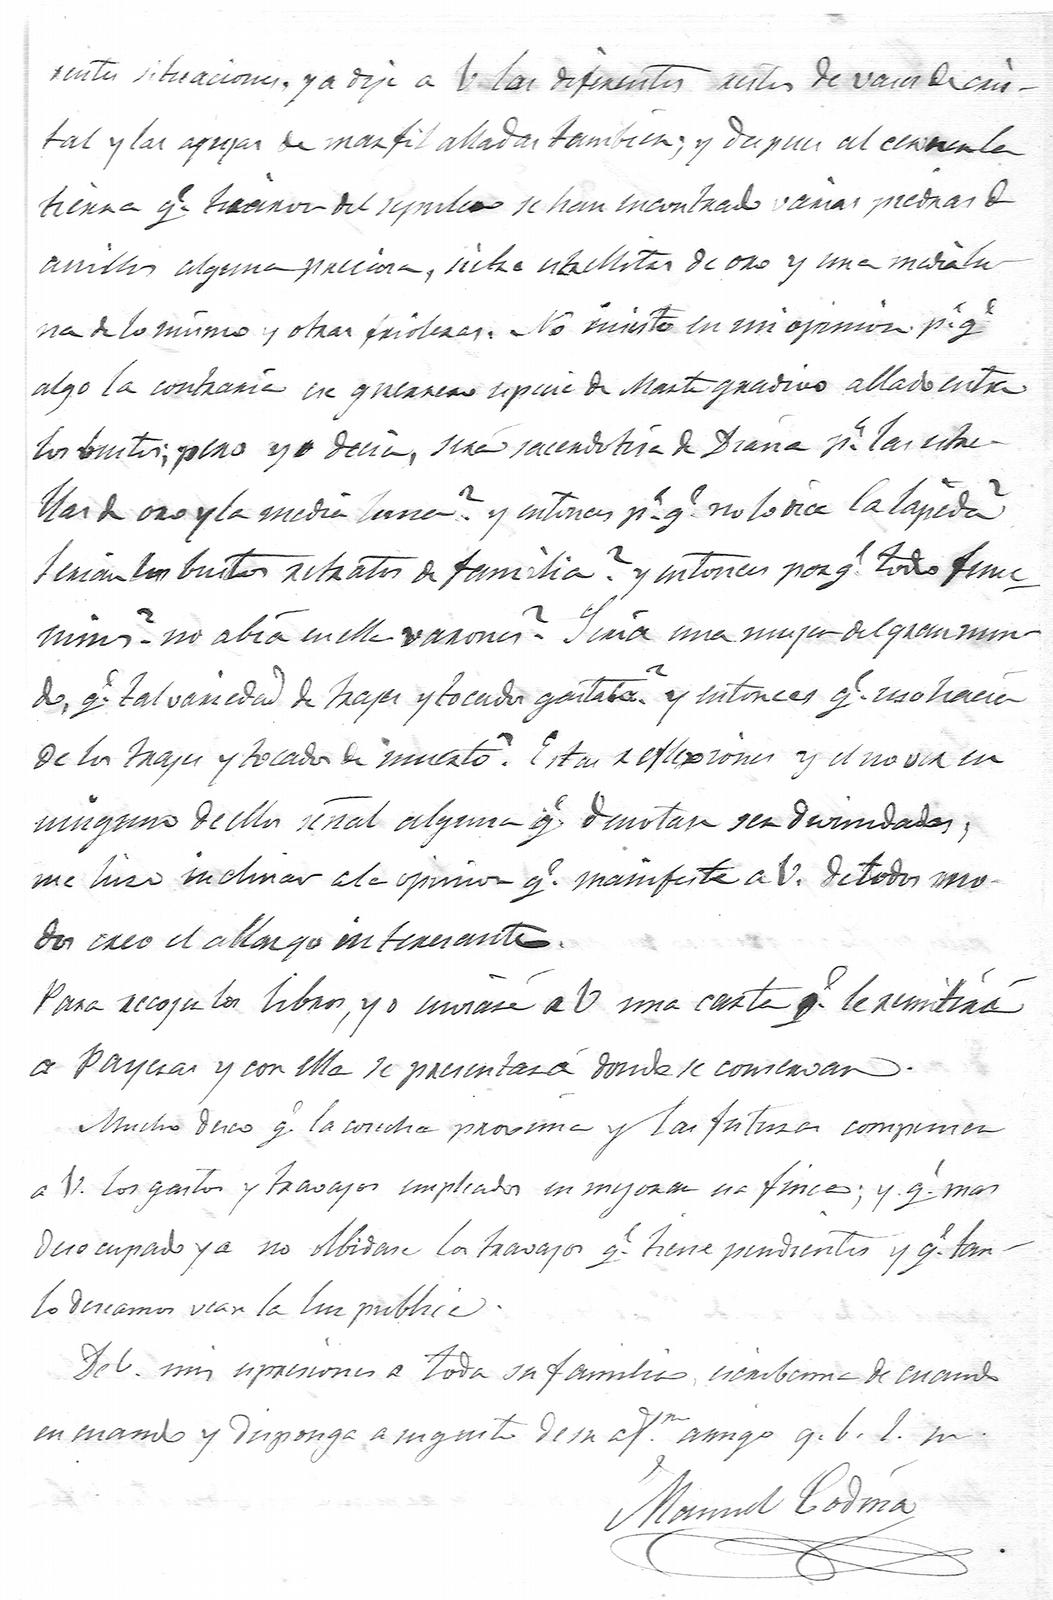 rentes situaciones, ya dije a V. las diferentes restos de vasos de cris-
tal y las agujas de marfil alladas tambien; y despues al cerner la
tierra q.e tiraron del sepulcro se han encontrado varias piedras de
anillos alguna preciosa, siete estrellitas de oro y una medialu-
na de lo mismo y otras frioleras. No insisto en mi opinion p.r q.e
algo la contraria ese guerrero especie de Marte gradivo allado entre
los bustos; pero yo decia, sera sacerdotisa de Diana p.r las estre-
llas de oro y la media luna? y entonces p.r q.e no lo dice la lapida?
Serian los bustos retratos de familia? y entonces porq.e todo feme-
ninos? no abia en ella varones? Seria una mujer del gran mun-
do, q.e tal variedad de trajes y tocados gastaba? y entonces q.e uso hacia
de los trajes y tocados de muerto? Estas reflexiones y el no ver en
ninguno de ellos señal alguna q.e denotase ser divinidades,
me hizo inclinar a la opinion q.e manifeste a V. de todos mo-
dos creo el allazgo interesante.
Para recojer los libros, yo enviaré a V una carta q.e le remitirá
a Payeras y con ella se presentará donde se conservan.
Mucho deseo q.e la cosecha procsima y las futuras compensen
a V. los gastos y travajos empleados en mejorar esa finca; y q.e mas
desocupado ya no olbidase los travajos q.e tiene pendientes y q.e tan-
to deseamos vean la luz publica.
De V. mis espresiones a toda su familia, escribame de cuando
en cuando y disponga a su gusto de su af.mo amigo q. b. s. m.
Manuel Codina